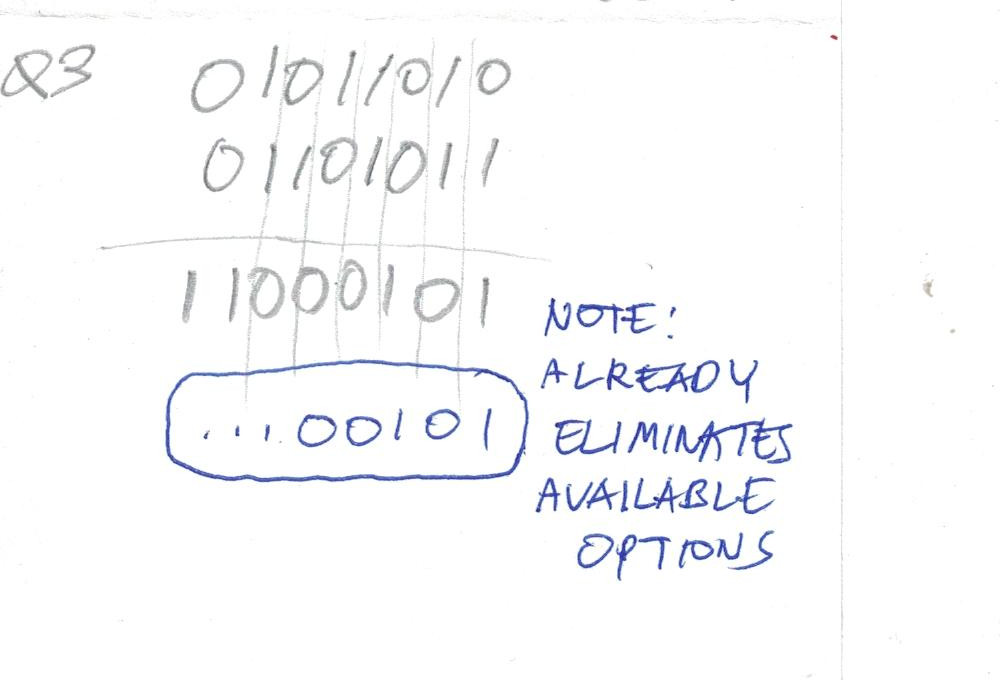 Q3 01011010
01101011
11000101
NOTE:
ALREADY
...00101 ELIMINATES
AVAILABLE
OPTIONS